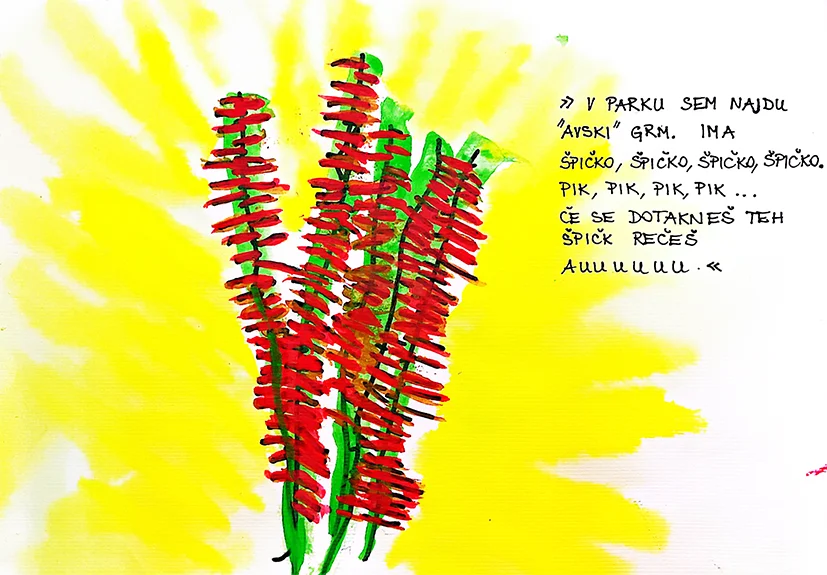 » V PARKU SEM NAJDU
"AVSKI" GRM. IMA
ŠPIČKO, ŠPIČKO, ŠPIČKO, ŠPIČKO.
PIK, PIK, PIK, PIK ...
ČE SE DOTAKNEŠ TEH
ŠPIČK REČEŠ
AUUUUUU. «